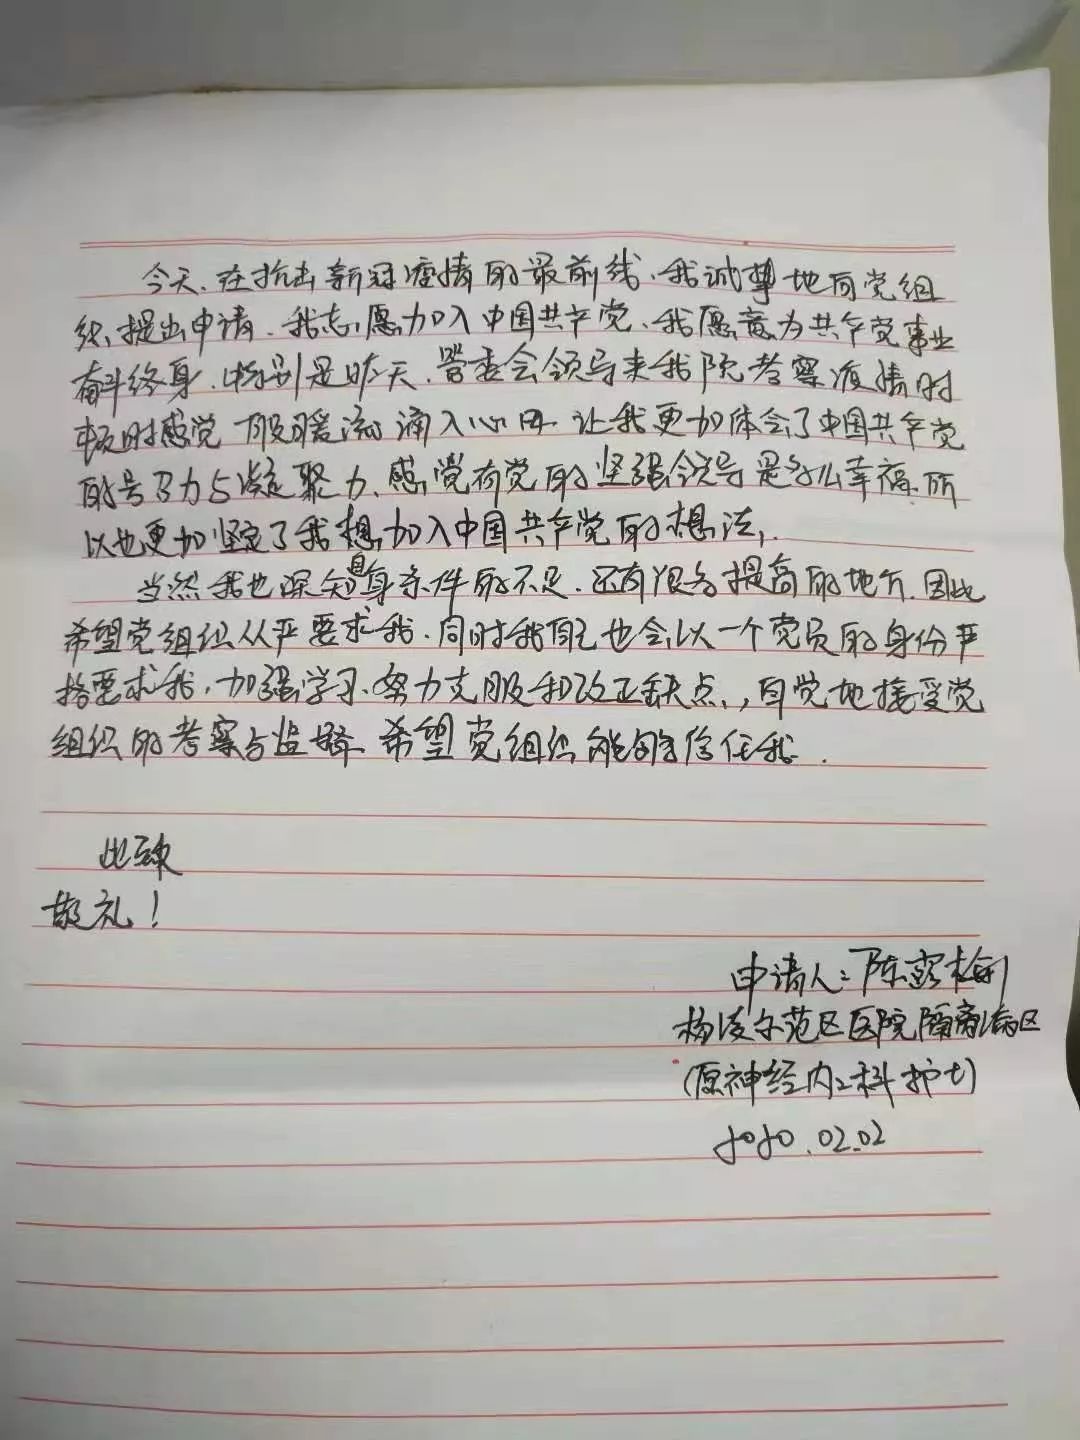 今天、在抗击新冠疫情的最前线、我诚挚地向党组
织提出申请、我志愿加入中国共产党、我愿意为共产党事业
奋斗终身、特别是昨天、管委会领导来我院考察疫情时
顿时感觉一股暖流涌入心田、让我更加体会了中国共产党
的号召力与凝聚力、感觉有党的坚强领导是多么幸福、所
以也更加坚定了我想加入中国共产党的想法、
当然我也深知自身条件的不足、还有很多提高的地方、因此
希望党组织从严要求我、同时我自己也会以一个党员的身份严
格要求我、加强学习、努力克服和改正缺点、，自觉地接受党
组织的考察与监督、希望党组织能够信任我、
此致
敬礼！
申请人：陈
杨凌示范区医院隔离病区
(原神经内二科护士)
2020.02.02